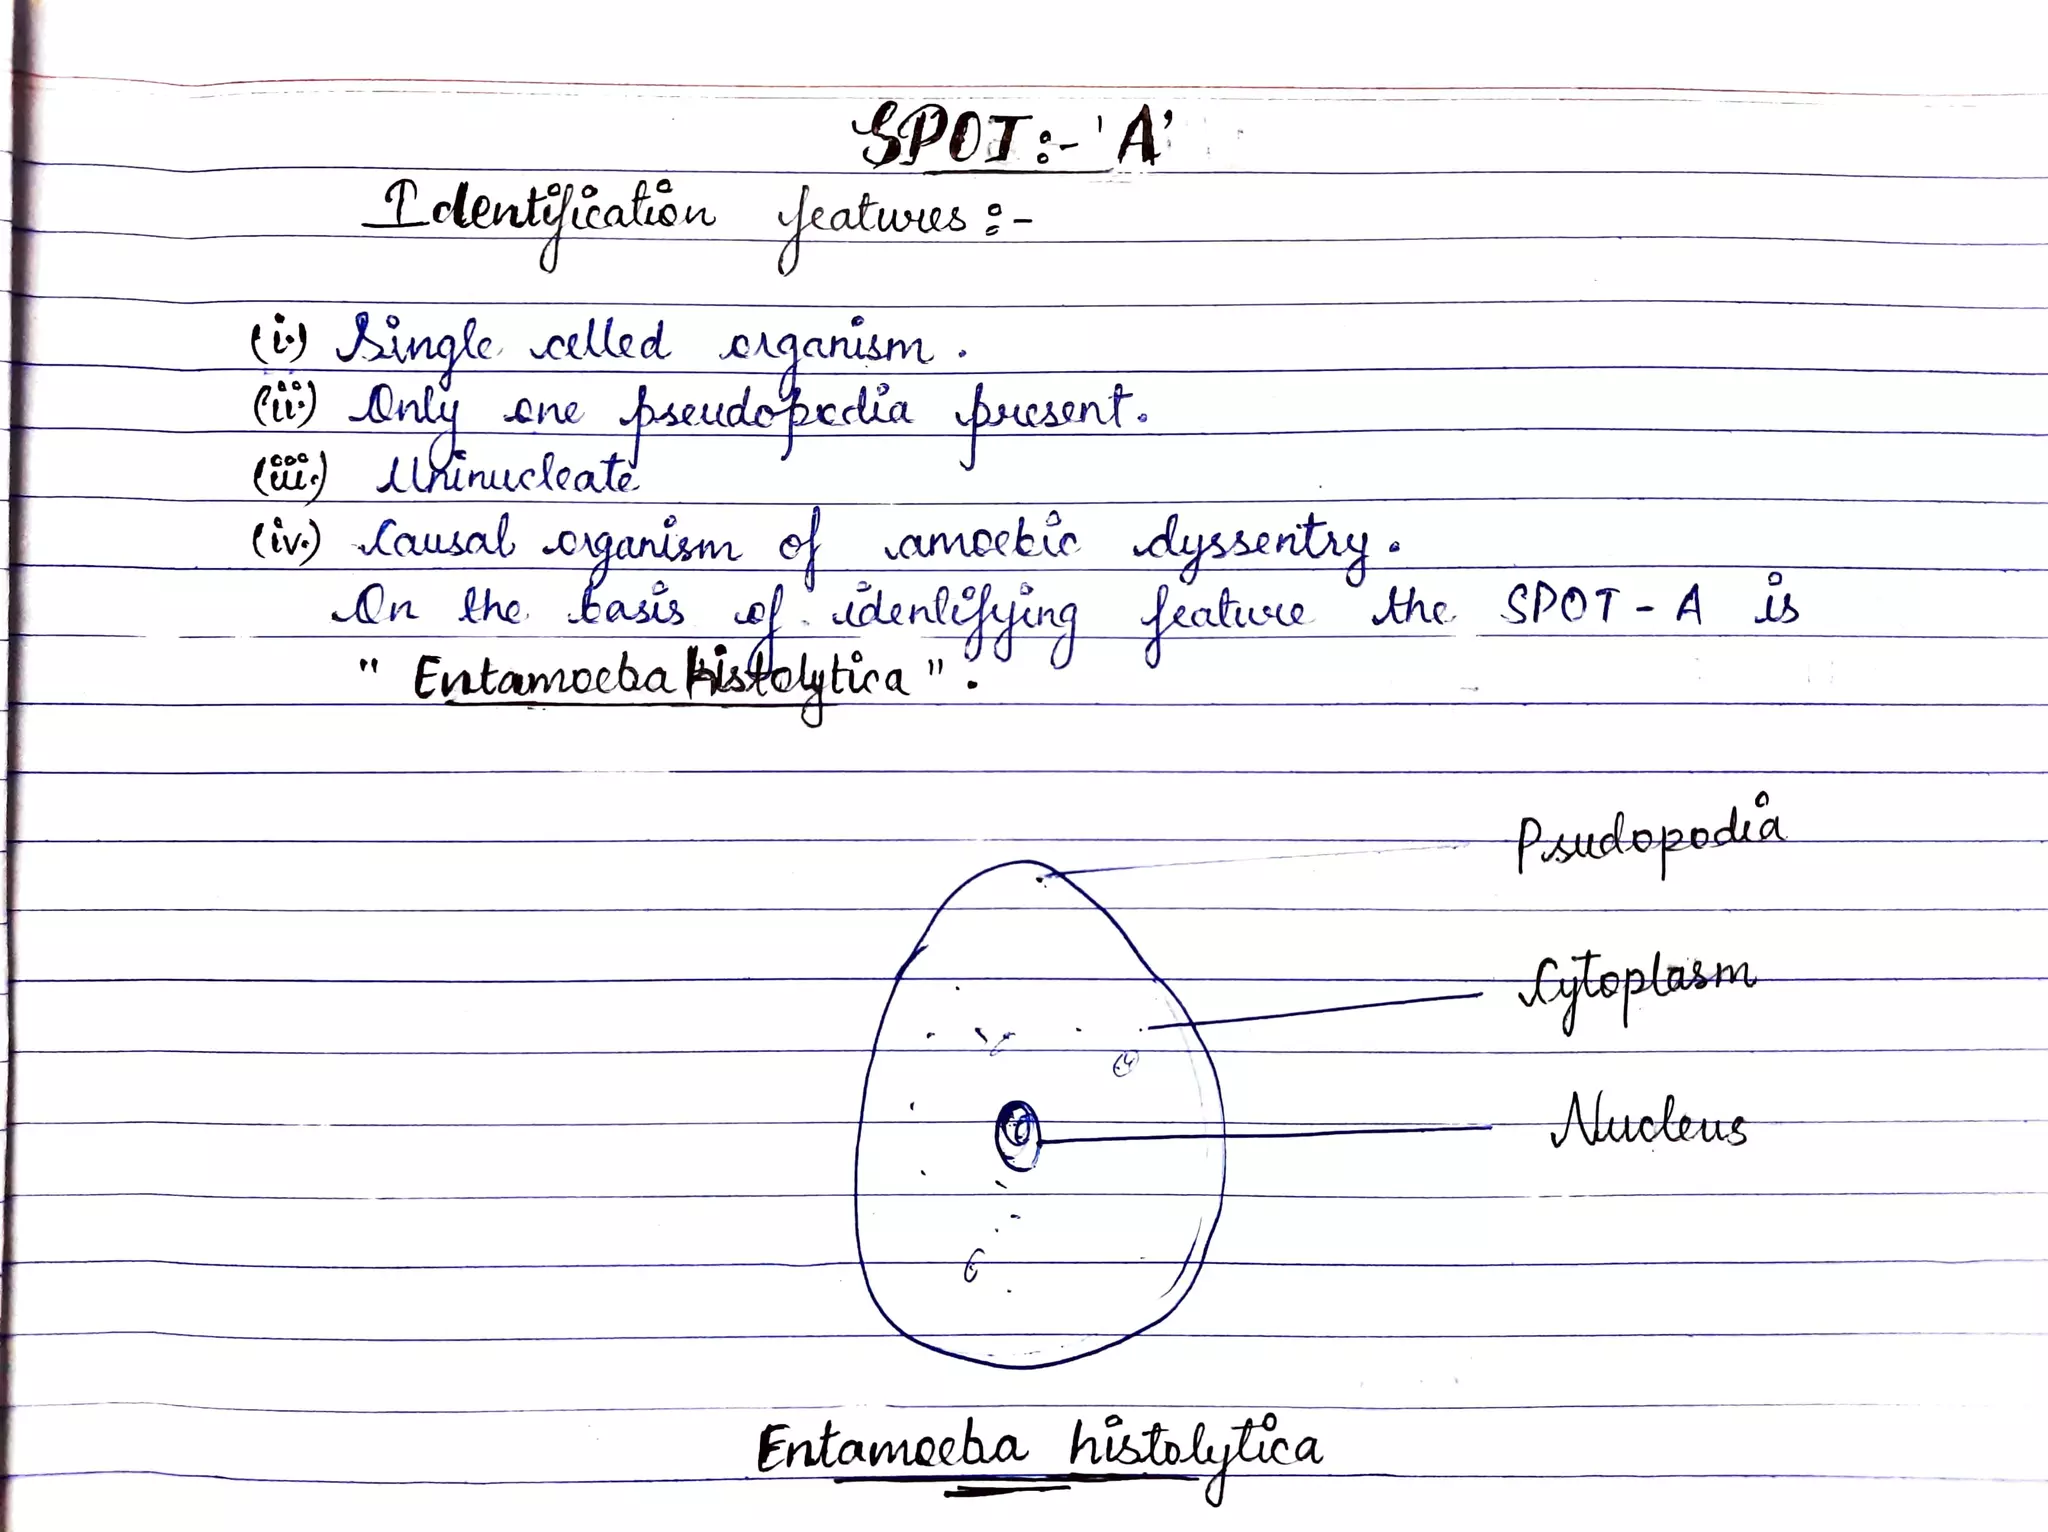 SPOT:- 'A'
Identification features :-
(i.) Single celled organism.
(ii.) Only one pseudopodia present.
(iii.) Uninucleate
(iv.) Causal organism of amoebic dyssentry.
On the basis of identifying feature the SPOT - A is
" Entamoeba histolytica ".
Psudopodia
Cytoplasm
Nucleus
Entamoeba histolytica